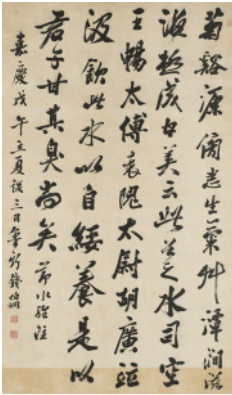 菊谿源旁悉生菊艸潭澗滋
液極成甘美云此谷之水司空
王暢太傅袁隗太尉胡廣竝
汲飲此水以自綏養是以
君子甘其臭尚矣 節水經注
嘉慶戊午立夏後三日魯斯錢伯坰